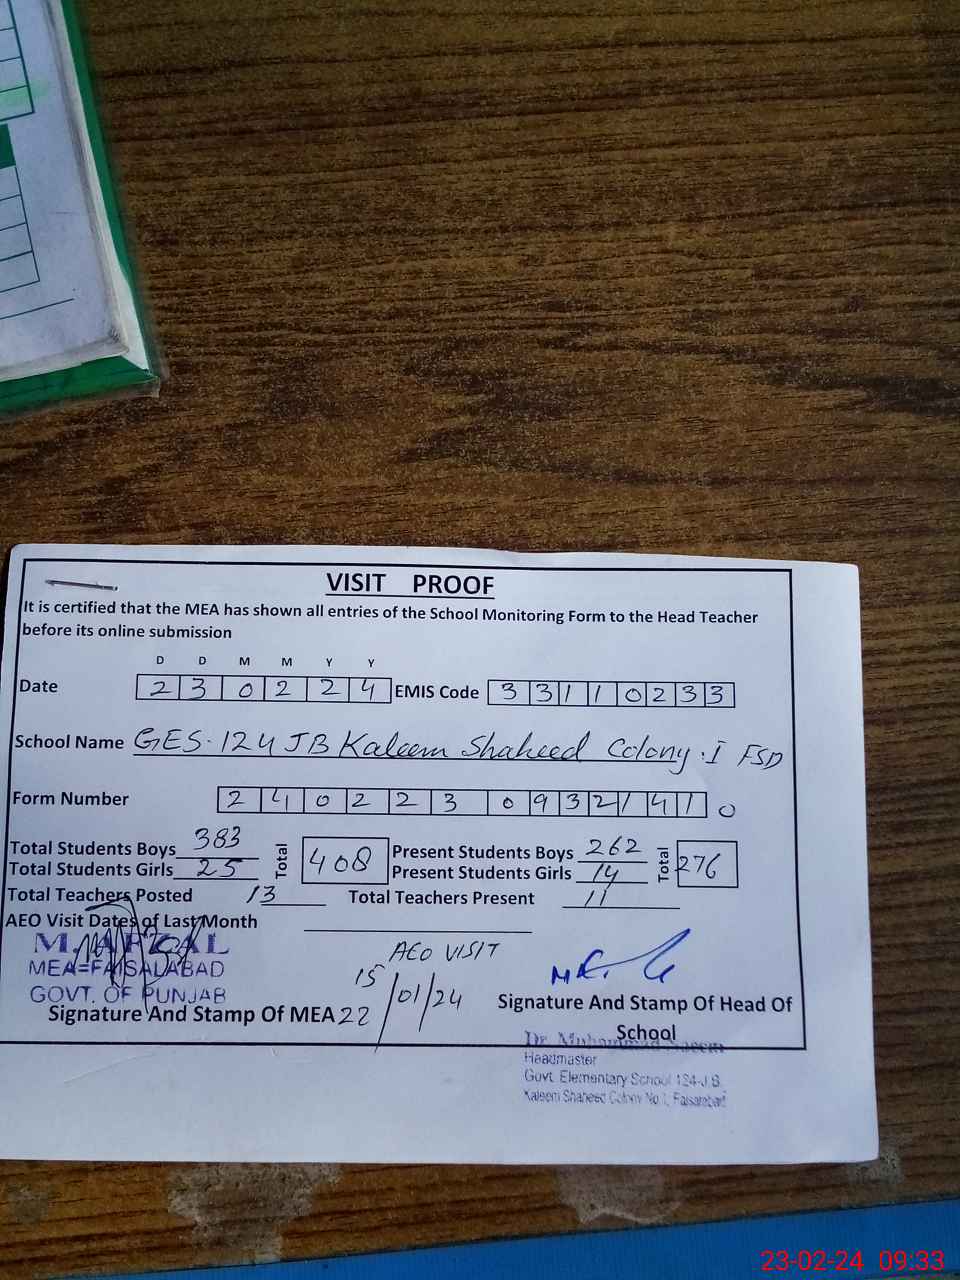 VISIT PROOF
It is certified that the MEA has shown all entries of the School Monitoring Form to the Head Teacher
before its online submission
D D M M Y Y
Date 2 3 0 2 2 4 EMIS Code 3 3 1 1 0 2 3 3
School Name GES. 124 JB Kaleem Shaheed Colony. I FSD
Form Number 2 4 0 2 2 3 0 9 3 2 1 4 1 0
Total Students Boys 383 Total 408 Present Students Boys 262 Total 276
Total Students Girls 25 Present Students Girls 14
Total Teachers Posted 13 Total Teachers Present 11
AEO Visit Dates of Last Month
AEO VISIT
M. AFZAL
MEA=FAISALABAD
GOVT. OF PUNJAB
15
22 /01/24
Signature And Stamp Of MEA
Signature And Stamp Of Head Of
School
Dr. Muhammad Naeem
Headmaster
Govt. Elementary School 124-J.B.
Kaleem Shaheed Colony No 1, Faisalabad
23-02-24 09:33